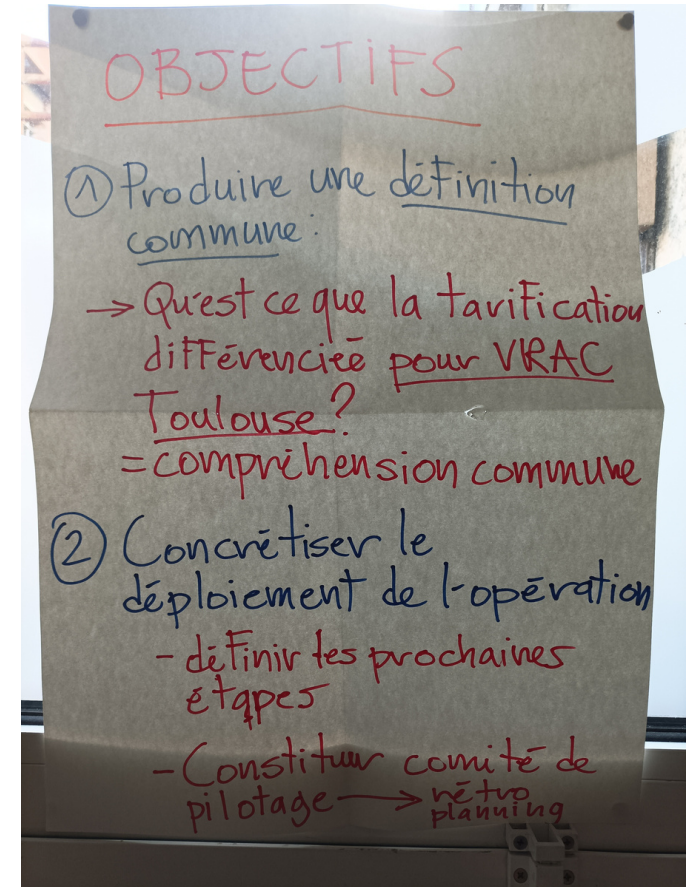 OBJECTIFS
① Produire une définition
commune :
→ Qu'est ce que la tarification
différenciée pour VRAC
Toulouse ?
= compréhension commune
② Concrétiser le
déploiement de l'opération
- définir les prochaines
étapes
- Constituer comité de
pilotage → rétro
planning